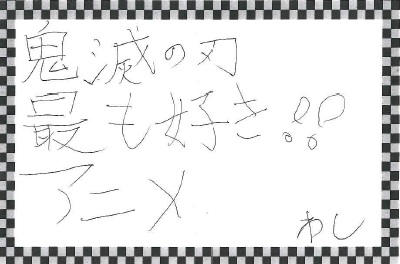 鬼滅の刃
最も好き!!
アニメ
わし